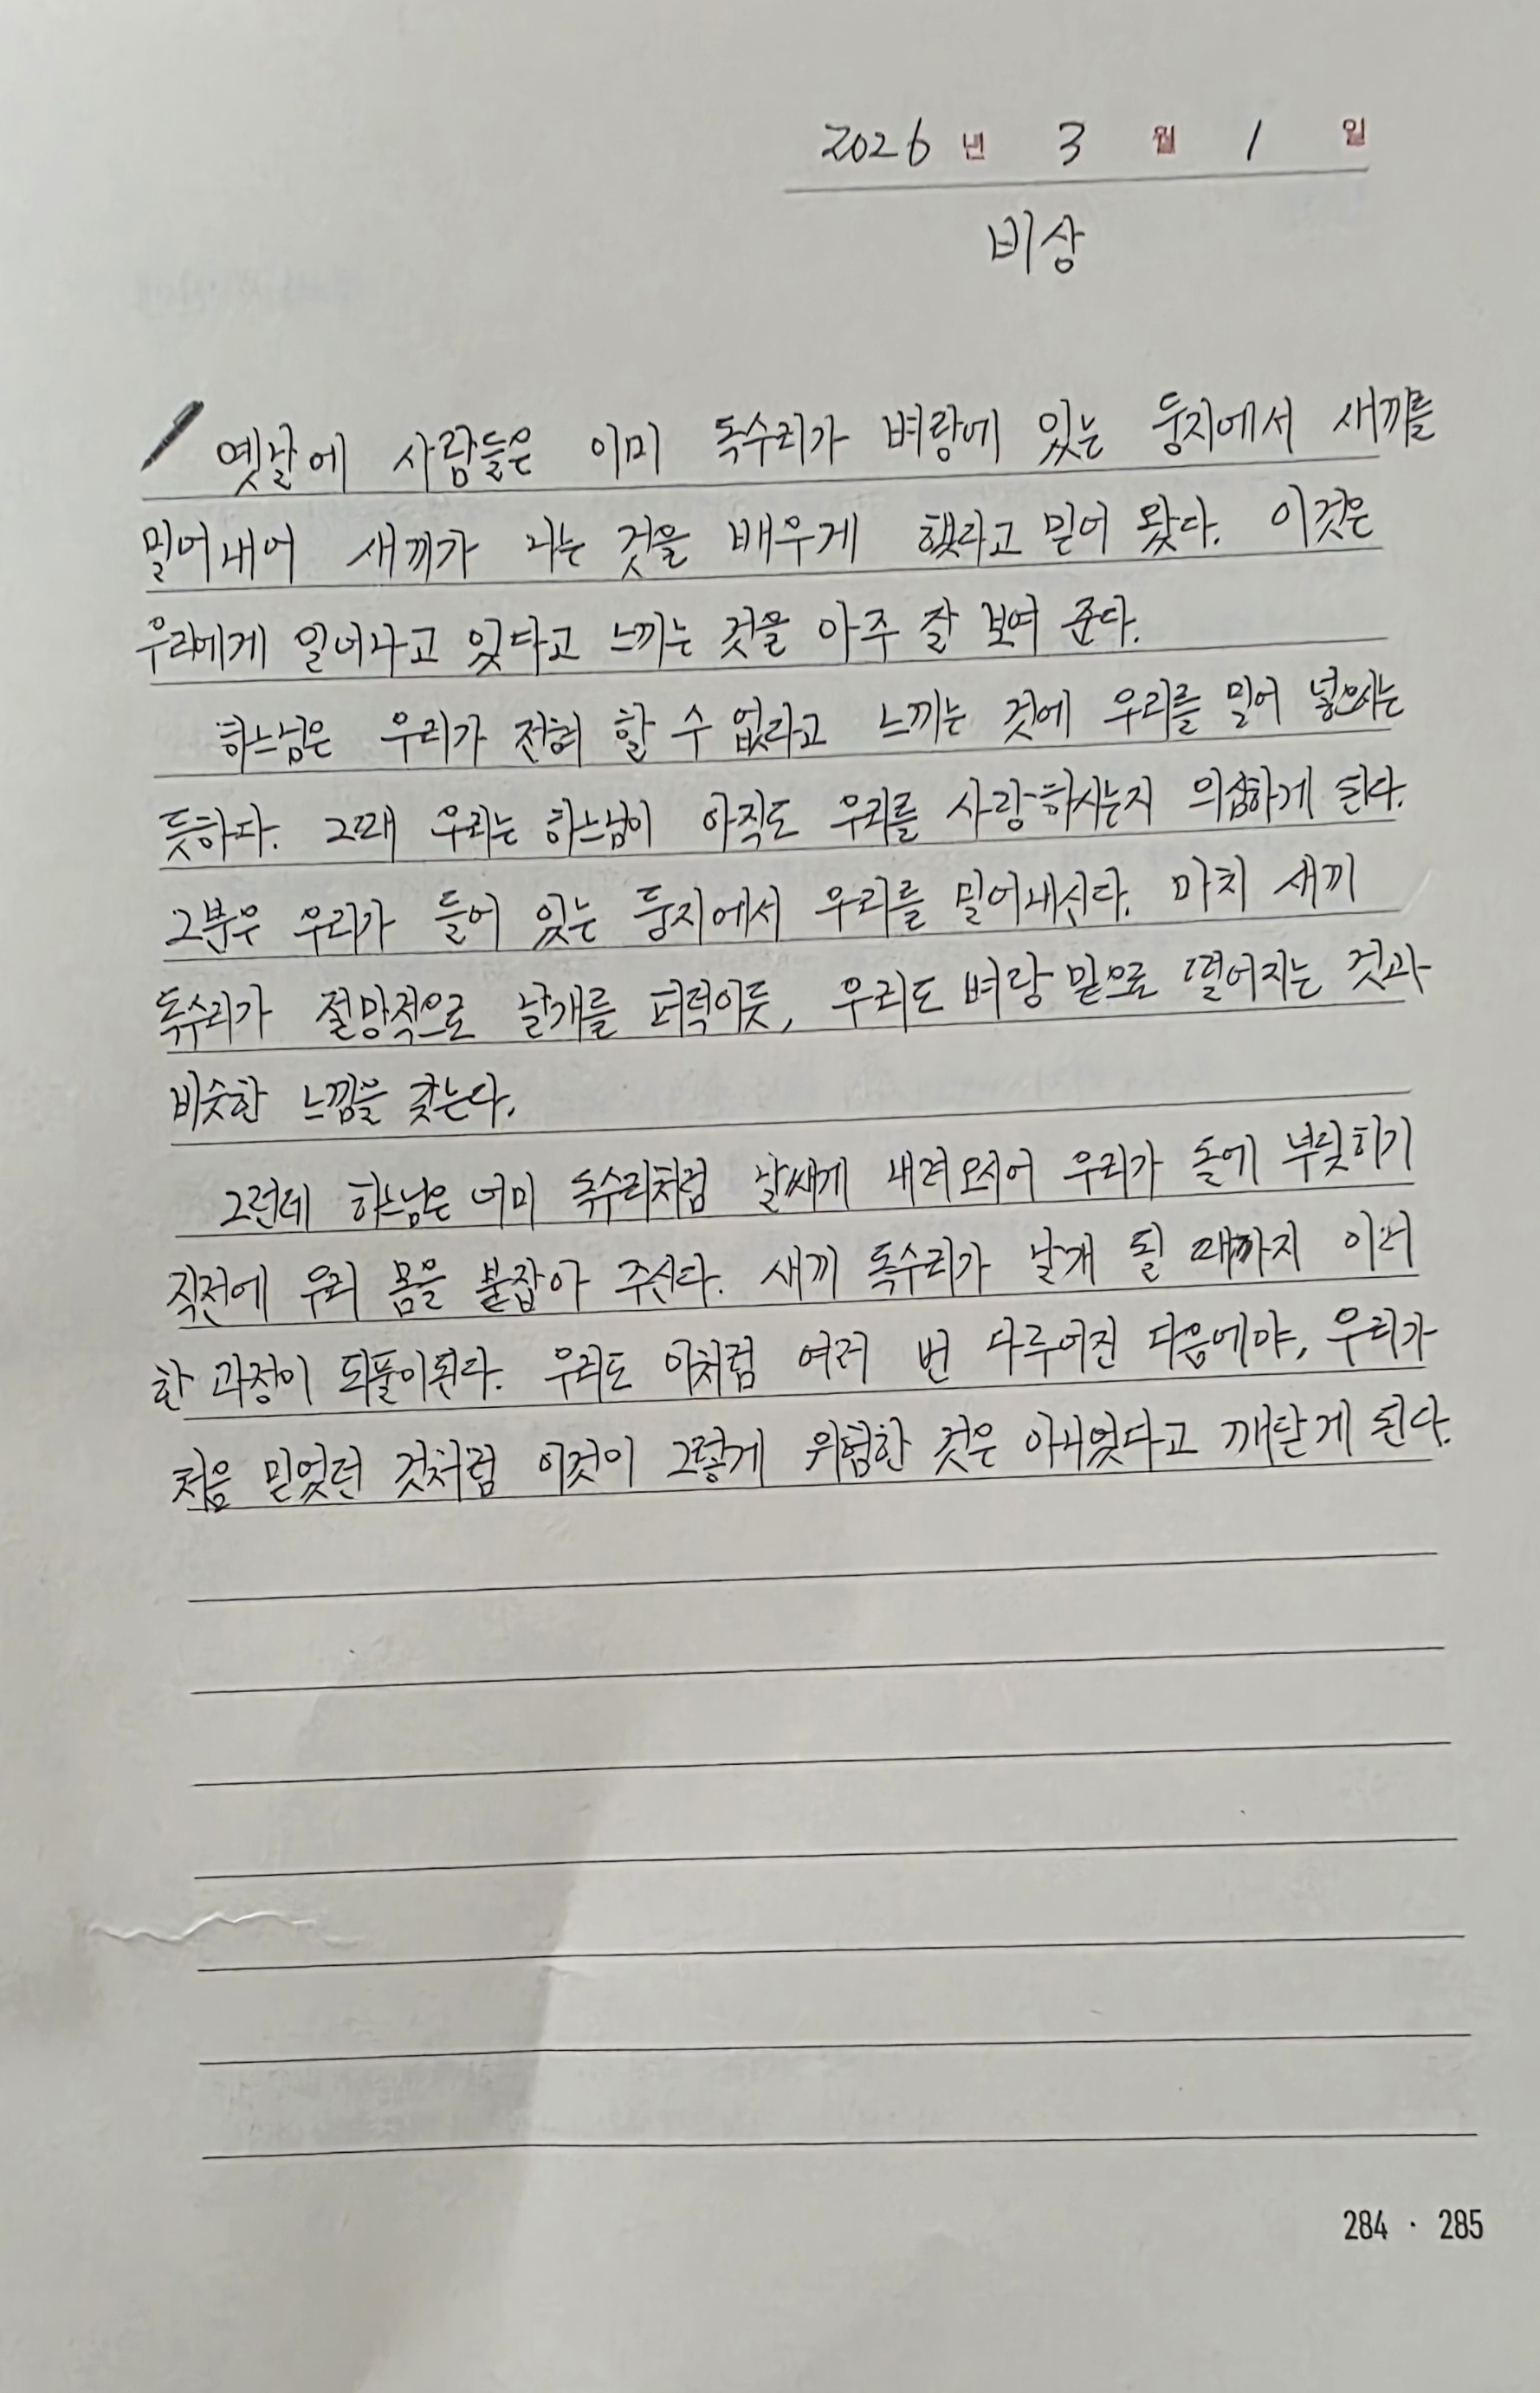 2026 년 3 월 1 일
비상
옛날에 사람들은 이미 독수리가 벼랑에 있는 둥지에서 새끼를
밀어내어 새끼가 나는 것을 배우게 했다고 믿어 왔다. 이것은
우리에게 일어나고 있다고 느끼는 것을 아주 잘 보여 준다.
하느님은 우리가 전혀 할 수 없다고 느끼는 것에 우리를 밀어 넣으시는
듯하다. 그때 우리는 하느님이 아직도 우리를 사랑하시는지 의심하게 된다.
그분우 우리가 들어 있는 둥지에서 우리를 밀어내신다. 마치 새끼
독수리가 절망적으로 날개를 퍼덕이듯, 우리도 벼랑 밑으로 떨어지는 것과
비슷한 느낌을 갖는다.
그런데 하느님은 어미 독수리처럼 날쌔게 내려오시어 우리가 돌에 부딪히기
직전에 우리 몸을 붙잡아 주신다. 새끼 독수리가 날게 될 때까지 이러
한 과정이 되풀이된다. 우리도 이처럼 여러 번 다루어진 다음에야, 우리가
처음 믿었던 것처럼 이것이 그렇게 위험한 것은 아니었다고 깨닫게 된다.
284 · 285